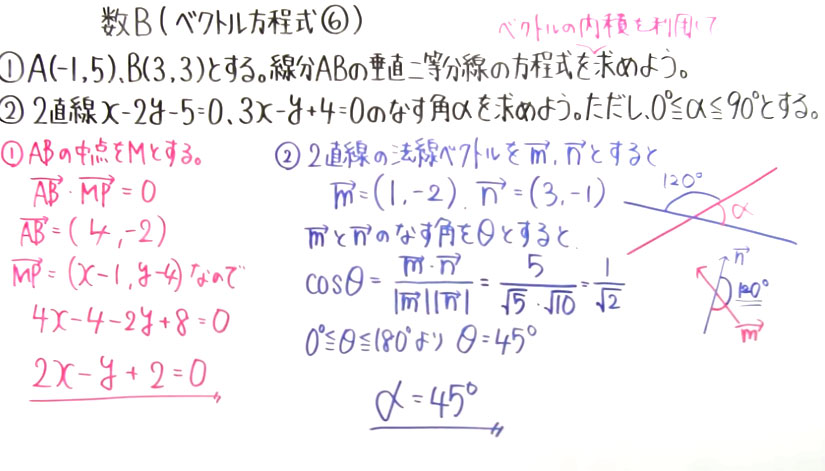 数B(ベクトル方程式⑥)
ベクトルの内積を利用!?
①A(-1,5)、B(3,3)とする。線分ABの垂直二等分線の方程式を求めよう。
②2直線x-2y-5=0、3x-y+4=0のなす角αを求めよう。ただし、0°≦α≦90°とする。
①ABの中点をMとする。
\overrightarrow{AB}・\overrightarrow{MP}=0
\overrightarrow{AB}=(4,-2)
\overrightarrow{MP}=(x-1,y-4)なので
4x-4-2y+8=0
2x-y+2=0
②2直線の法線ベクトルを\vec{m},\vec{n}とすると
\vec{m}=(1,-2),\vec{n}=(3,-1)
\vec{m}と\vec{n}のなす角をθとすると
cosθ=\frac{\vec{m}・\vec{n}}{|\vec{m}||\vec{n}|}=\frac{5}{\sqrt{5}・\sqrt{10}}=\frac{1}{\sqrt{2}}
0°≦θ≦180°より θ=45°
α=45°
120°
α
\vec{n}
120°
\vec{m}